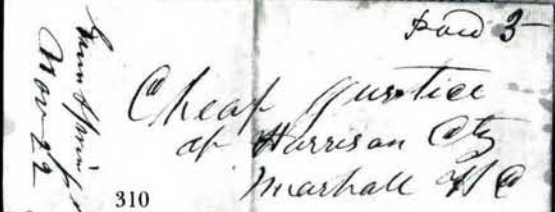 Paid 3
Cheaf Justice
of Harrison Cty
Marshall
Nov 22
310